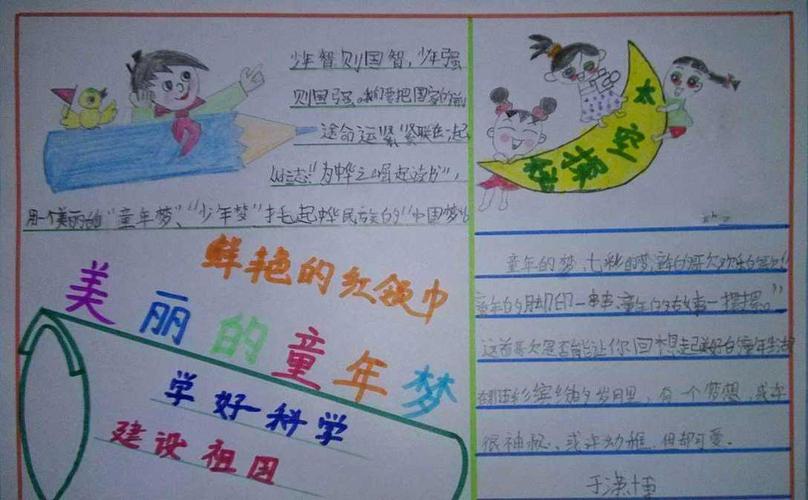 少年智则国智,少年强
则国强。我要把国家的前
途命运紧紧联在一起
志"为中华之崛起读书",
用一个美丽的"童年梦"、"少年梦"托起中华民族的"中国梦"
鲜艳的红领巾
美丽的童年梦
学好科学
建设祖国
太空探秘
童年的梦,七彩的梦,童年的歌欢乐的歌,
童年的脚印一串串,童年的故事一摞摞。"
这首歌是否能让你回想起美好的童年生活
在那五彩缤纷的岁月里,有一个梦想,或许
很神秘、或许幼稚,但却可爱。
于潇博